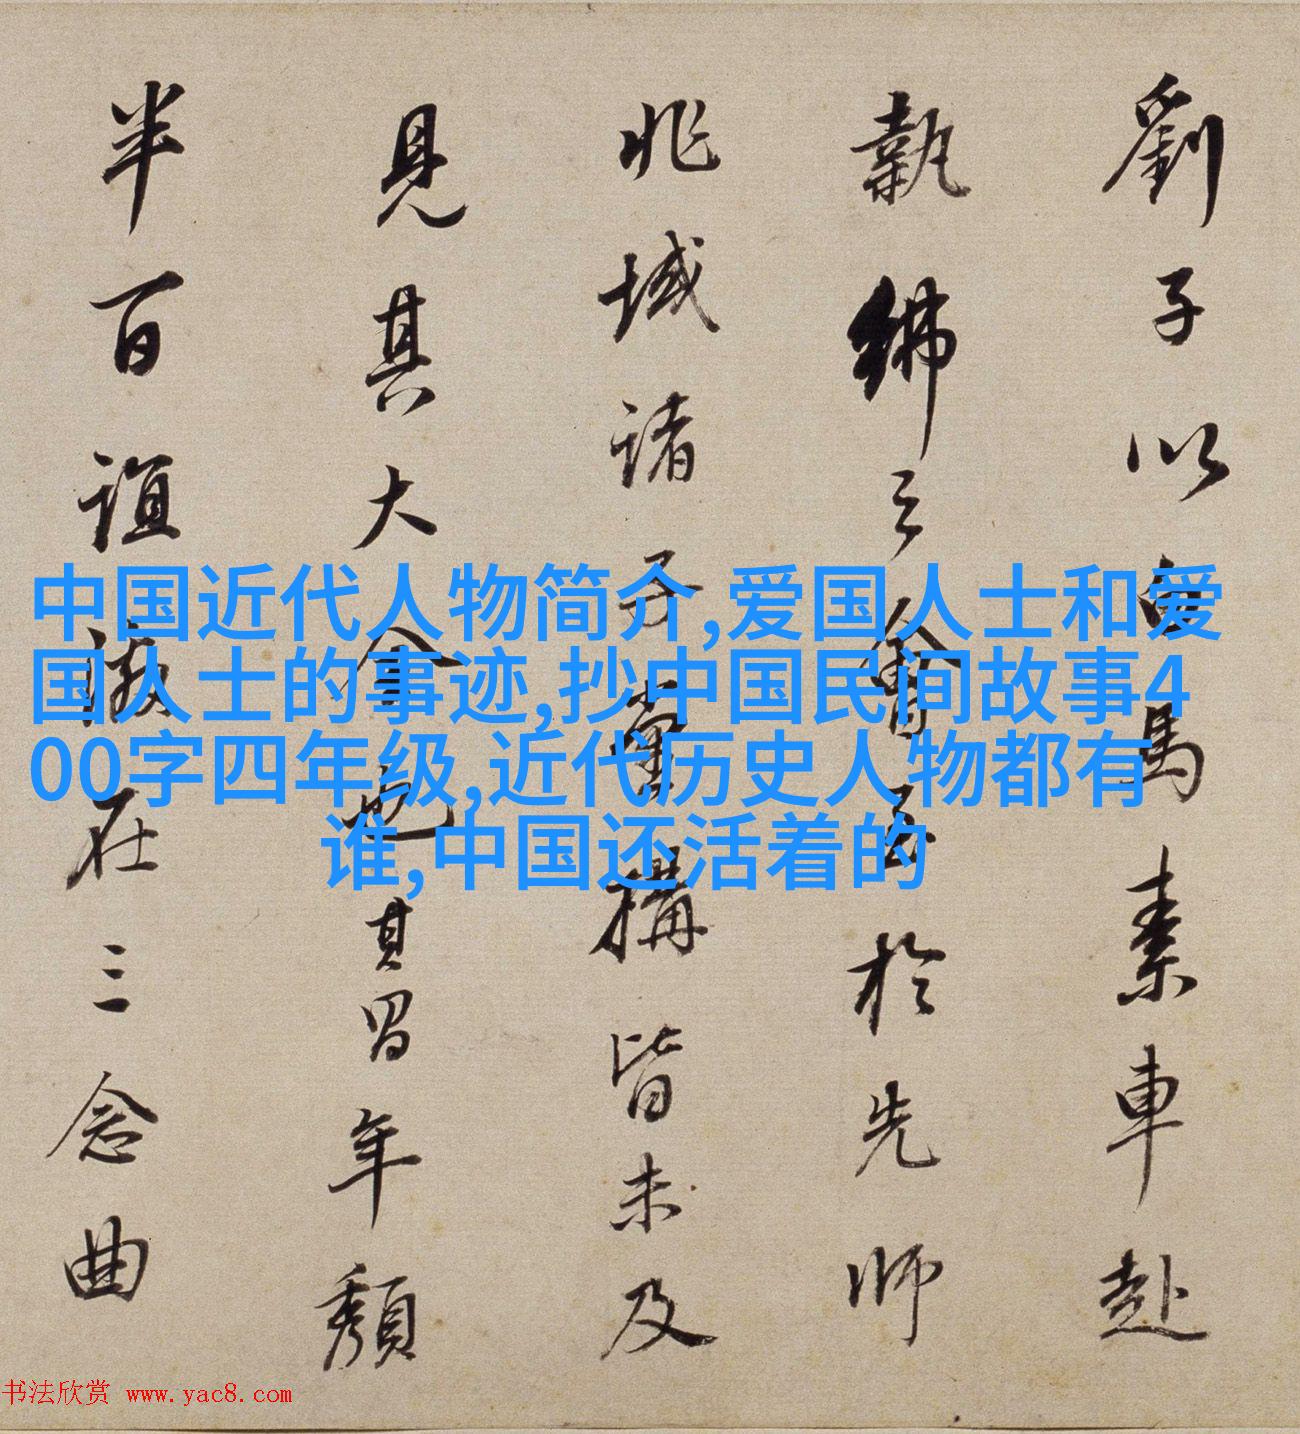 劉子以白馬素車赴
執紼之會至於先師
兆域諸子堂構皆未及
見其大全也其冒年頹
半百誼
在三念曲
中国近代人物简介,爱国人士和爱
国人士的事迹,抄中国民间故事4
00字四年级,近代历史人物都有
谁,中国还活着的
书法欣赏 www.yac8.com